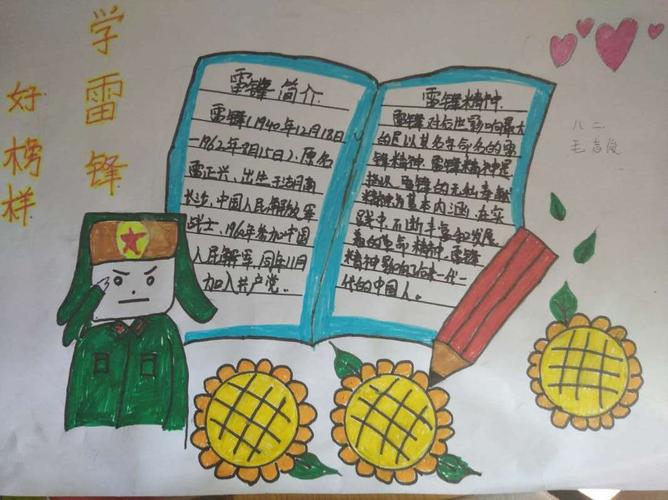 学雷锋
好榜样
雷锋简介
雷锋(1940年12月18日
-1962年8月15日),原名
雷正兴,出生于湖南
长沙,中国人民解放军
战士,1960年参加中国
人民解军,同年11月
加入共产党。
雷锋精神
雷锋对后世影响最大
的是以其名字命名的雷
锋精神,雷锋精神是
指以雷锋的无私奉献
精神为基本内涵,在实
践中不断丰富和发展
着的革命精神,雷锋
精神影响了后来一代一
代的中国人。
八二
毛